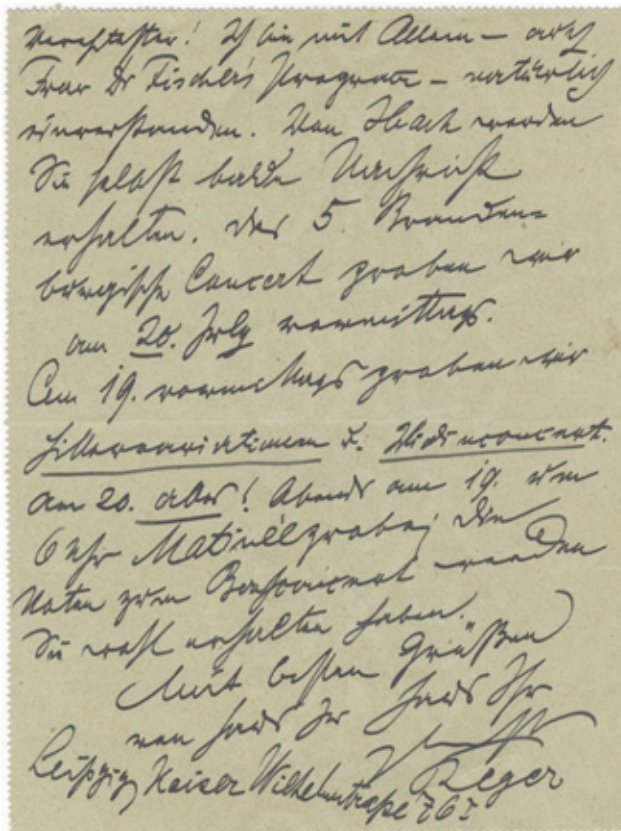 Verehrtester! Ich bin mit Allem – auch
Frau Dr Fischers Programm – natürlich
einverstanden. Von Ibach werden
Sie selbst balde Nachricht
erhalten. Das 5. Branden=
burgische Concert proben wir
am 20. July vormittags.
Am 19. vormittags proben wir
Hillervariationen u. Violinconcert.
Am 20. alles! Abends am 19. um
6 Uhr Matinéeprobe; die
Noten zum Bachconcert werden
Sie wohl erhalten haben.
Mit besten Grüßen
von Haus zu Haus Ihr
Reger
Leipzig, Kaiser Wilhelmstraße